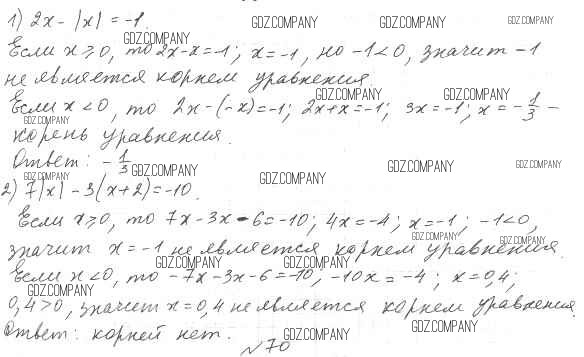 1) 2x - |x| = -1.
GDZ.COMPANY GDZ.COMPANY GDZ.COMPANY
GDZ.COMPANY
Если x ≥ 0, то 2x - x = -1; x = -1, но -1 < 0, значит -1
не является корнем уравнения.
GDZ.COMPANY GDZ.COMPANY
Если x < 0, то 2x - (-x) = -1; 2x + x = -1; 3x = -1; x = -1/3 -
GDZ.COMPANY
корень уравнения.
Ответ: -1/3
GDZ.COMPANY GDZ.COMPANY GDZ.COMPANY
GDZ.COMPANY GDZ.COMPANY
2) 7|x| - 3(x+2) = -10.
Если x ≥ 0, то 7x - 3x - 6 = -10; 4x = -4; x = -1; -1 < 0,
GDZ.COMPANY GDZ.COMPANY
значит x = -1 не является корнем уравнения.
GDZ.COMPANY GDZ.COMPANY
Если x < 0, то -7x - 3x - 6 = -10, -10x = -4; x = 0,4;
GDZ.COMPANY
0,4 > 0, значит x = 0,4 не является корнем уравнения.
Ответ: корней нет.
GDZ.COMPANY GDZ.COMPANY
№70